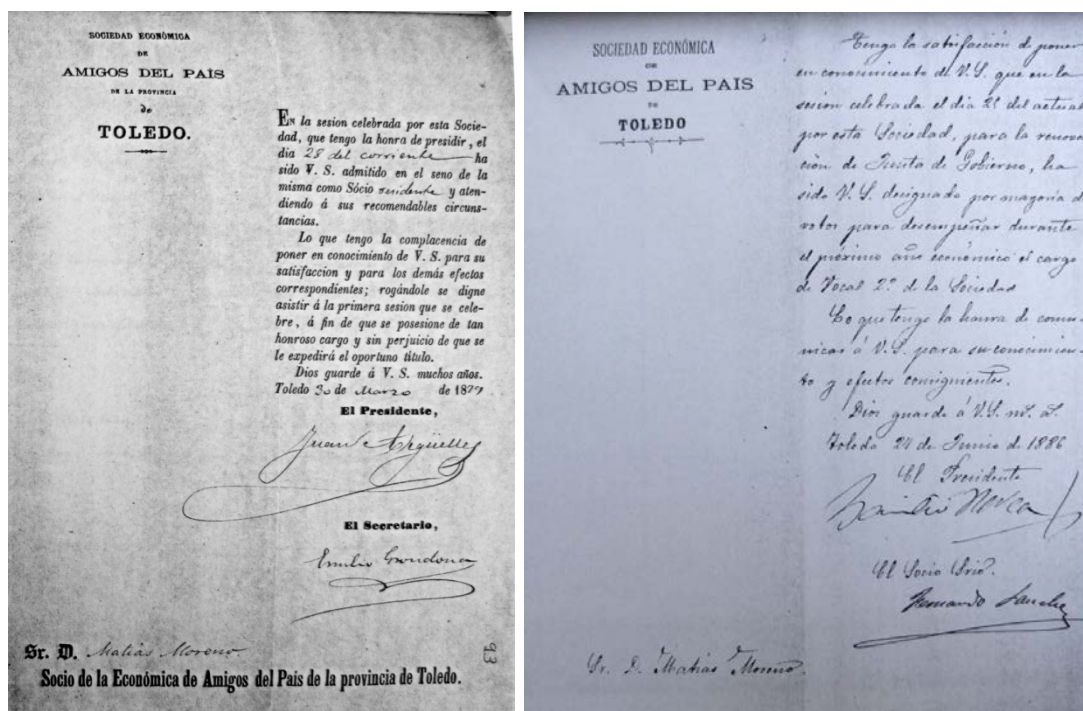 SOCIEDAD ECONÓMICA
DE
AMIGOS DEL PAÍS
DE LA PROVINCIA
de
TOLEDO.
EN la sesion celebrada por esta Socie-
dad, que tengo la honra de presidir, el
dia 28 del corriente ha
sido V. S. admitido en el seno de la
misma como Sócio residente y aten-
diendo á sus recomendables circuns-
tancias.
Lo que tengo la complacencia de
poner en conocimiento de V. S. para su
satisfaccion y para los demás efectos
correspondientes; rogándole se digne
asistir á la primera sesion que se cele-
bre, á fin de que se posesione de tan
honroso cargo y sin perjuicio de que se
le expedirá el oportuno título.
Dios guarde á V. S. muchos años.
Toledo 30 de Marzo de 1879
El Presidente,
Juan Argüelles
El Secretario,
Emilio Grondona
Sr. D. Matias Moreno
93
Socio de la Económica de Amigos del Pais de la provincia de Toledo.
SOCIEDAD ECONÓMICA
DE
AMIGOS DEL PAIS
DE
TOLEDO
Tengo la satisfacción de poner
en conocimiento de V.S. que en la
sesion celebrada el dia 21 del actual
por esta Sociedad, para la renova
ción de Junta de Gobierno, ha
sido V. S. designado por mayoria de
votos para desempeñar durante
el próximo año económico el cargo
de Vocal 2º de la Sociedad
Lo que tengo la honra de comu-
nicar á V.S. para su conocimien-
to y efectos consiguientes.
Dios guarde á V.S. ms. as.
Toledo 24 de Junio de 1886
El Presidente
El Socio Srio.
Fernando Sanchez
Sr. D. Matias Moreno